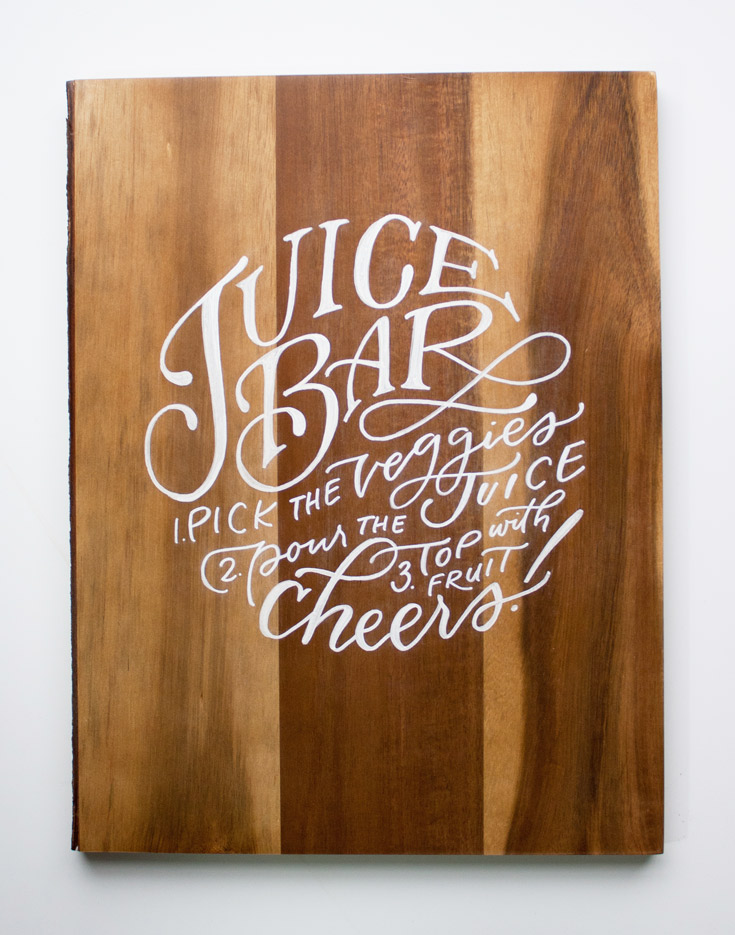 JUICE
BAR
1. PICK THE veggies
2. pour THE JUICE
3. TOP with
FRUIT
cheers!